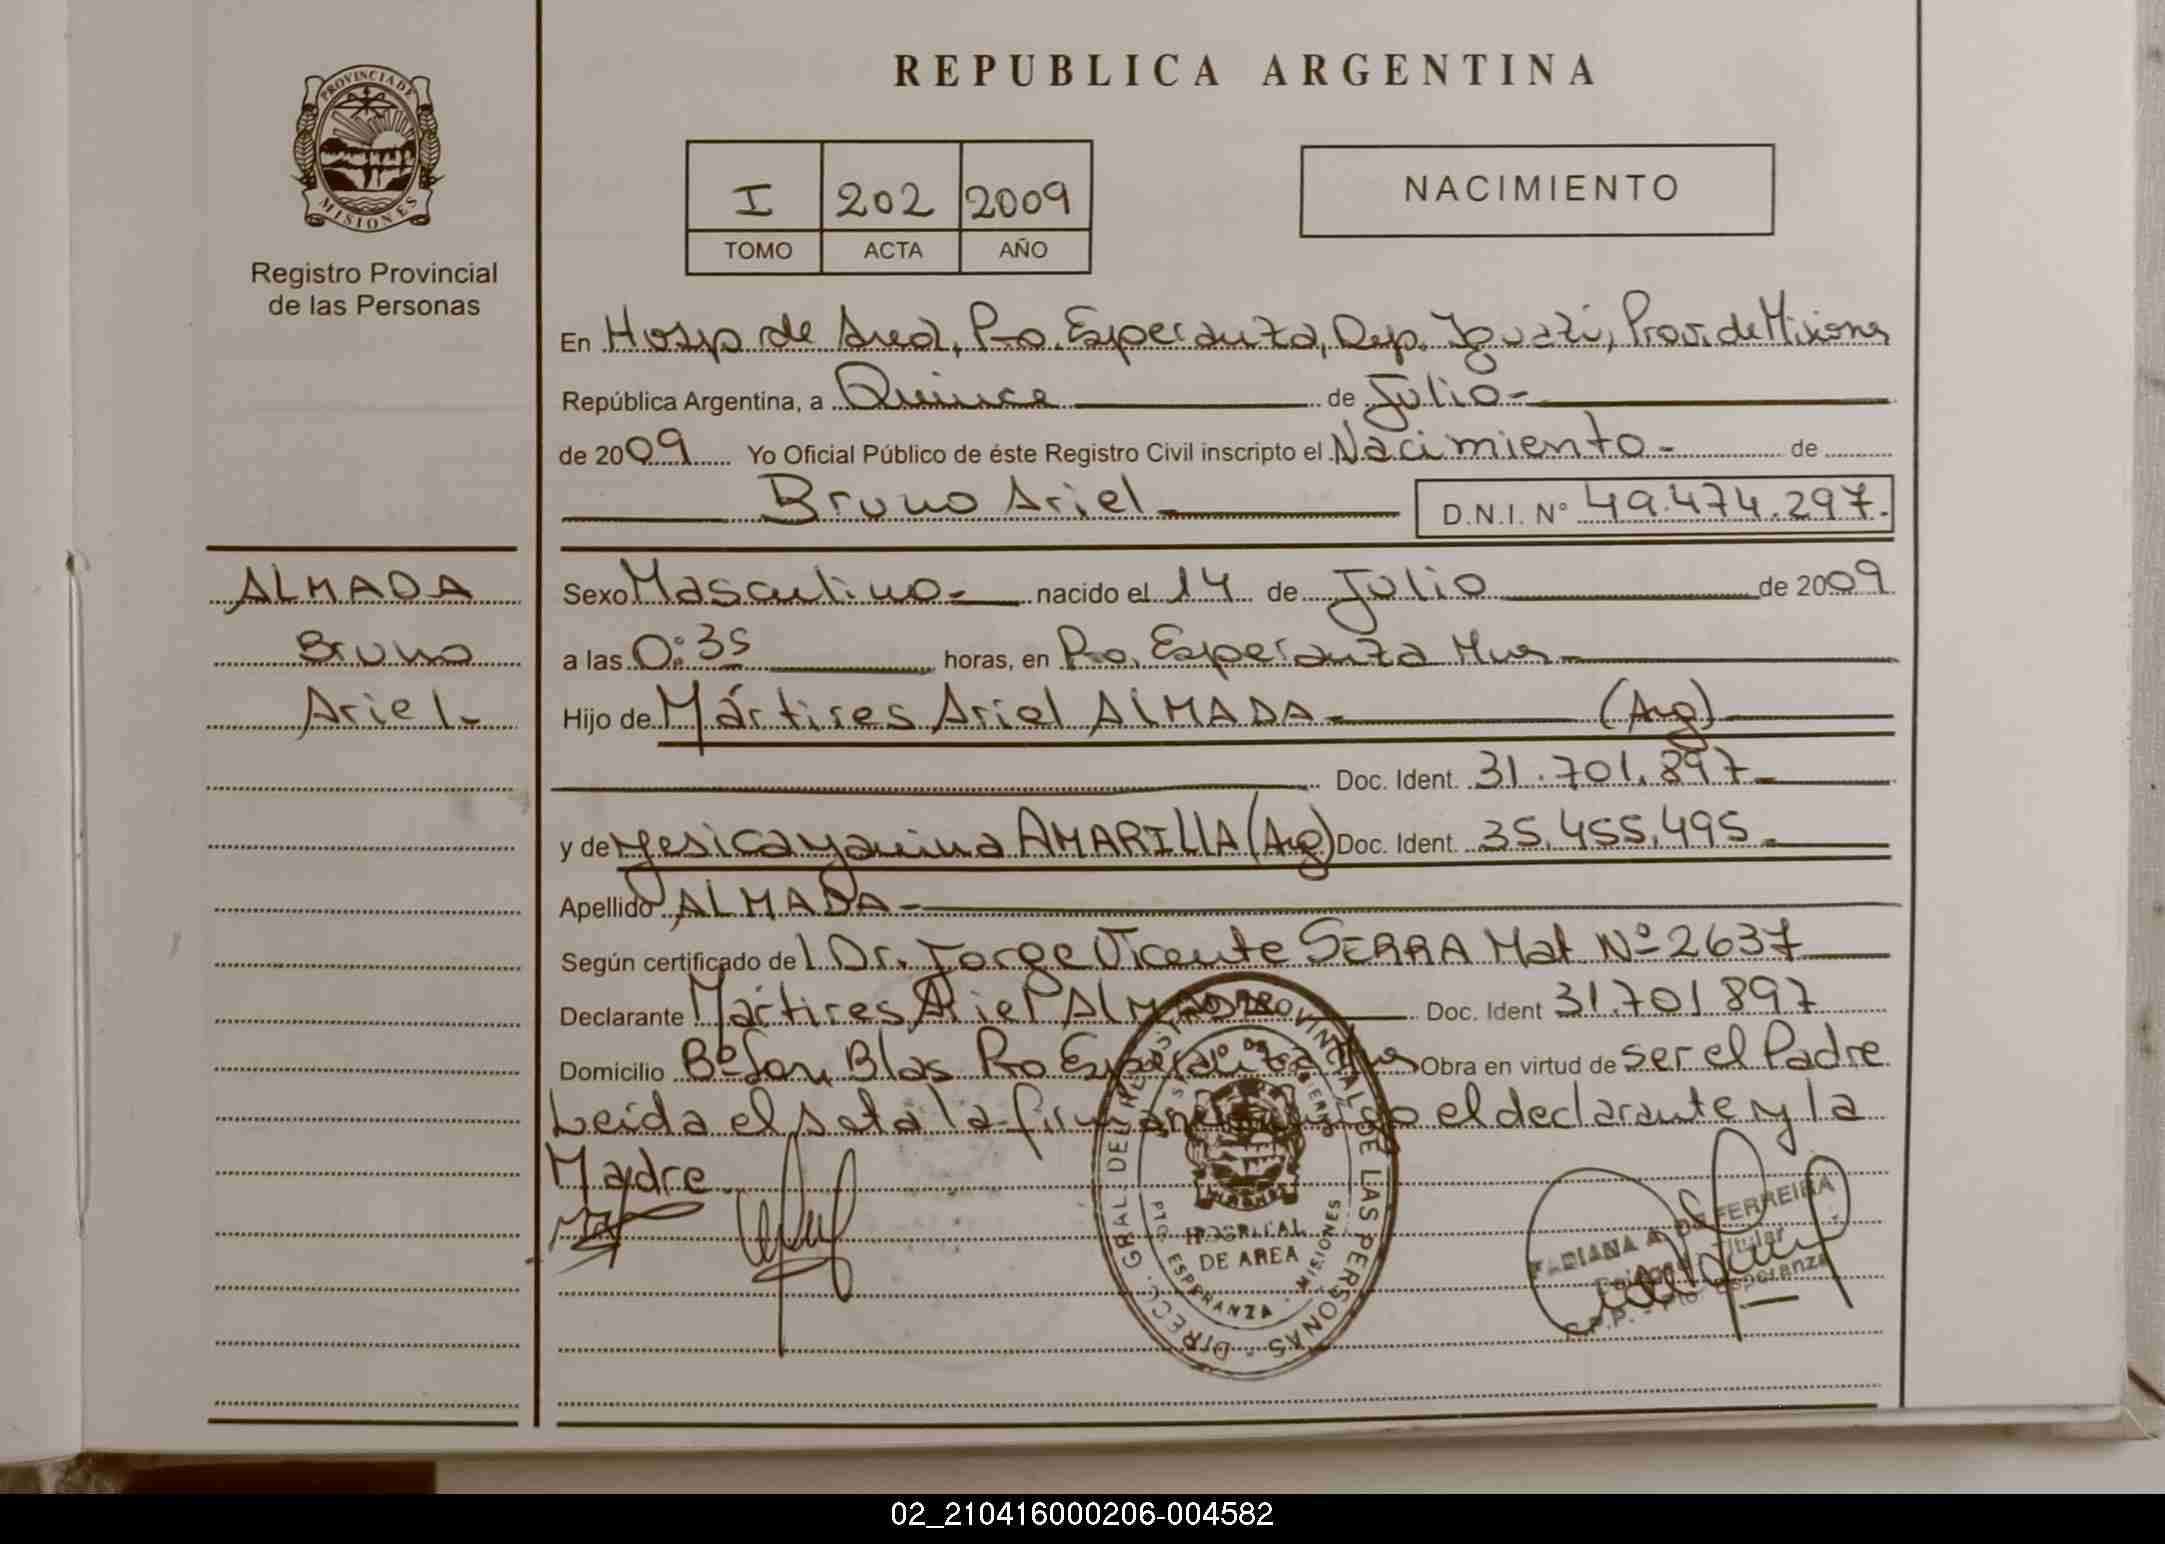 REPUBLICA ARGENTINA
PROVINCIA DE
MISIONES
Registro Provincial
de las Personas
I 202 2009
TOMO ACTA AÑO
NACIMIENTO
En Hosp de Area, Pto. Esperanza, Dep. Iguazú, Prov. de Misiones
República Argentina, a Quince de Julio-
de 2009 Yo Oficial Público de éste Registro Civil inscripto el Nacimiento- de
Bruno Ariel D.N.I. N° 49.474.297.
ALMADA
Bruno
Ariel.-
Sexo Masculino.- nacido el 14 de Julio de 2009
a las 0:35 horas, en Pto. Esperanza Mnes
Hijo de Mártires Ariel ALMADA- (Arg)
Doc. Ident. 31.701.897-
y de Yesica Yanina AMARILLA (Arg) Doc. Ident. 35.455.495-
Apellido ALMADA-
Según certificado del Dr. Jorge Vicente SERRA Mat Nº 2637
Declarante Mártires Ariel ALMADA Doc. Ident 31.701897
Domicilio Bº San Blas Pto Esperanza Mnes Obra en virtud de ser el Padre
Leida el Acta la firman el declarante y la
Madre.
DIRECC. GRAL DEL REGISTRO PROVINCIAL DE LAS PERSONAS
HOSPITAL
DE AREA
PTO. ESPERANZA - MISIONES
FABIANA A. DE FERREIRA
Titular
R.P.P. - Pto. Esperanza
02_210416000206-004582